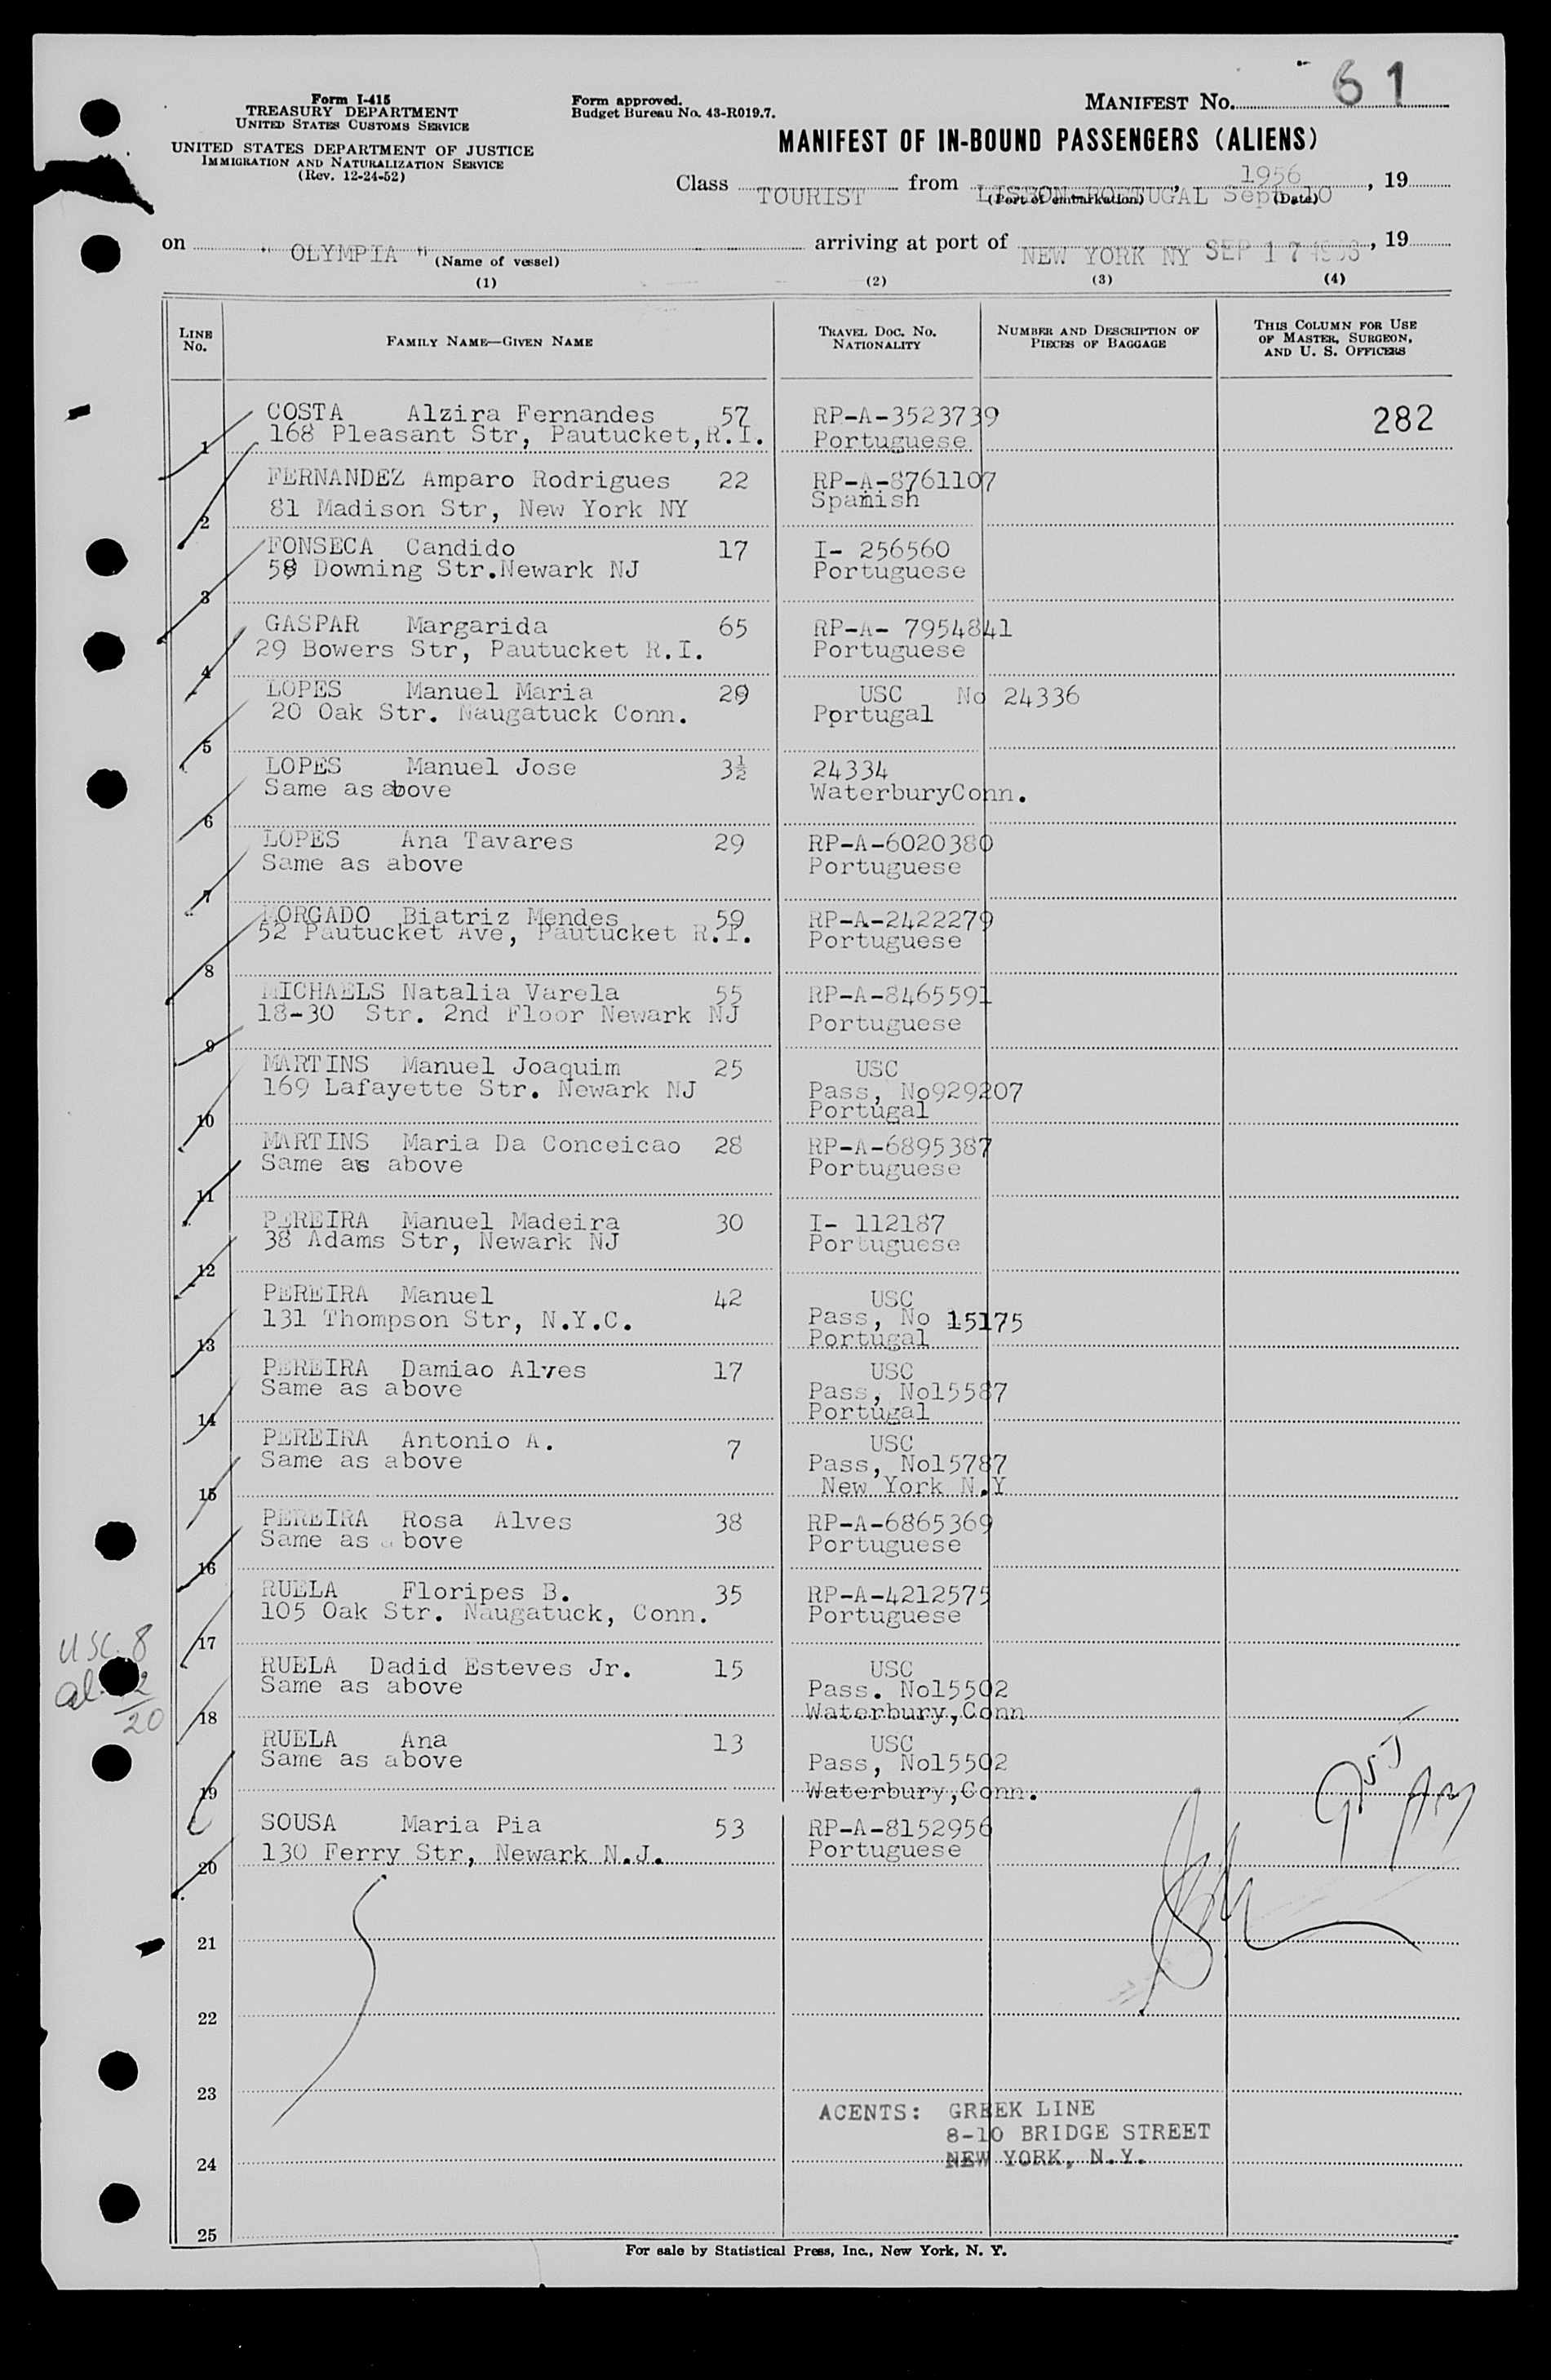 61
Form I-415
TREASURY DEPARTMENT
UNITED STATES CUSTOMS SERVICE
UNITED STATES DEPARTMENT OF JUSTICE
IMMIGRATION AND NATURALIZATION SERVICE
(Rev. 12-24-52)
Form approved.
Budget Bureau No. 43-R019.7.
MANIFEST No.
MANIFEST OF IN-BOUND PASSENGERS (ALIENS)
Class TOURIST from LISBON PORTUGAL Sept. 10 1956, 19
(Port of embarkation) (Date)
on " OLYMPIA " arriving at port of NEW YORK NY SEP 17 1956, 19
(Name of vessel)
(1) (2) (3) (4)
LINE No. FAMILY NAME—GIVEN NAME TRAVEL DOC. No. NATIONALITY NUMBER AND DESCRIPTION OF PIECES OF BAGGAGE THIS COLUMN FOR USE OF MASTER, SURGEON, AND U. S. OFFICERS
COSTA Alzira Fernandes 57 RP-A-3523739 282
1 168 Pleasant Str, Pautucket,R.I. Portuguese
FERNANDEZ Amparo Rodrigues 22 RP-A-8761107
2 81 Madison Str, New York NY Spanish
FONSECA Candido 17 I- 256560
3 58 Downing Str.Newark NJ Portuguese
GASPAR Margarida 65 RP-A- 7954841
4 29 Bowers Str, Pautucket R.I. Portuguese
LOPES Manuel Maria 29 USC No 24336
5 20 Oak Str. Naugatuck Conn. Portugal
LOPES Manuel Jose 3½ 24334
6 Same as above WaterburyConn.
LOPES Ana Tavares 29 RP-A-6020380
7 Same as above Portuguese
MORGADO Biatriz Mendes 59 RP-A-2422279
8 52 Pautucket Ave, Pautucket R.I. Portuguese
MICHAELS Natalia Varela 55 RP-A-8465591
9 18-30 Str. 2nd Floor Newark NJ Portuguese
MARTINS Manuel Joaquim 25 USC
169 Lafayette Str. Newark NJ Pass, No929207
10 Portugal
MARTINS Maria Da Conceicao 28 RP-A-6895387
11 Same as above Portuguese
PEREIRA Manuel Madeira 30 I- 112187
12 38 Adams Str, Newark NJ Portuguese
PEREIRA Manuel 42 USC
131 Thompson Str, N.Y.C. Pass, No 15175
13 Portugal
PEREIRA Damiao Alves 17 USC
Same as above Pass, No15587
14 Portugal
PEREIRA Antonio A. 7 USC
Same as above Pass, No15787
15 New York N.Y
PEREIRA Rosa Alves 38 RP-A-6865369
16 Same as above Portuguese
RUELA Floripes B. 35 RP-A-4212575
17 105 Oak Str. Naugatuck, Conn. Portuguese
USC. 8
al. 12
20
RUELA Dadid Esteves Jr. 15 USC
Same as above Pass. No15502
18 Waterbury,Conn
RUELA Ana 13 USC
Same as above Pass, No15502
19 Waterbury,Conn.
SOUSA Maria Pia 53 RP-A-8152956
20 130 Ferry Str, Newark N.J. Portuguese
21
22
23
ACENTS: GREEK LINE
8-10 BRIDGE STREET
24 NEW YORK, N.Y.
25
For sale by Statistical Press, Inc., New York, N. Y.